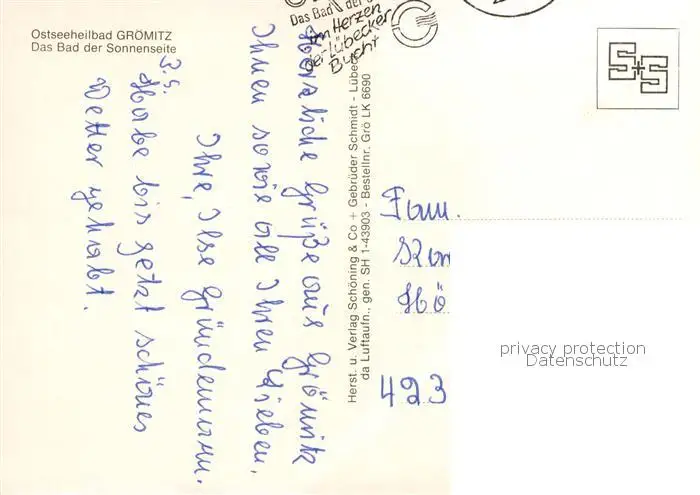 Ostseeheilbad GRÖMITZ
Das Bad der Sonnenseite
Das Bad der
Im Herzen
der Lübecker
Bucht
Herzliche Grüße aus Grömitz
Ihnen sowie all Ihren Lieben.
Ihre, Ilse Gründemann.
P.S.
Habe bis jetzt schönes
Wetter gehabt.
Herst. u. Verlag Schöning & Co + Gebrüder Schmidt - Lübec
da Luftaufn., gen. SH 1-43903 - Bestellnr. Grö LK 6690
S+S
Fam.
Hö
493
privacy protection
Datenschutz